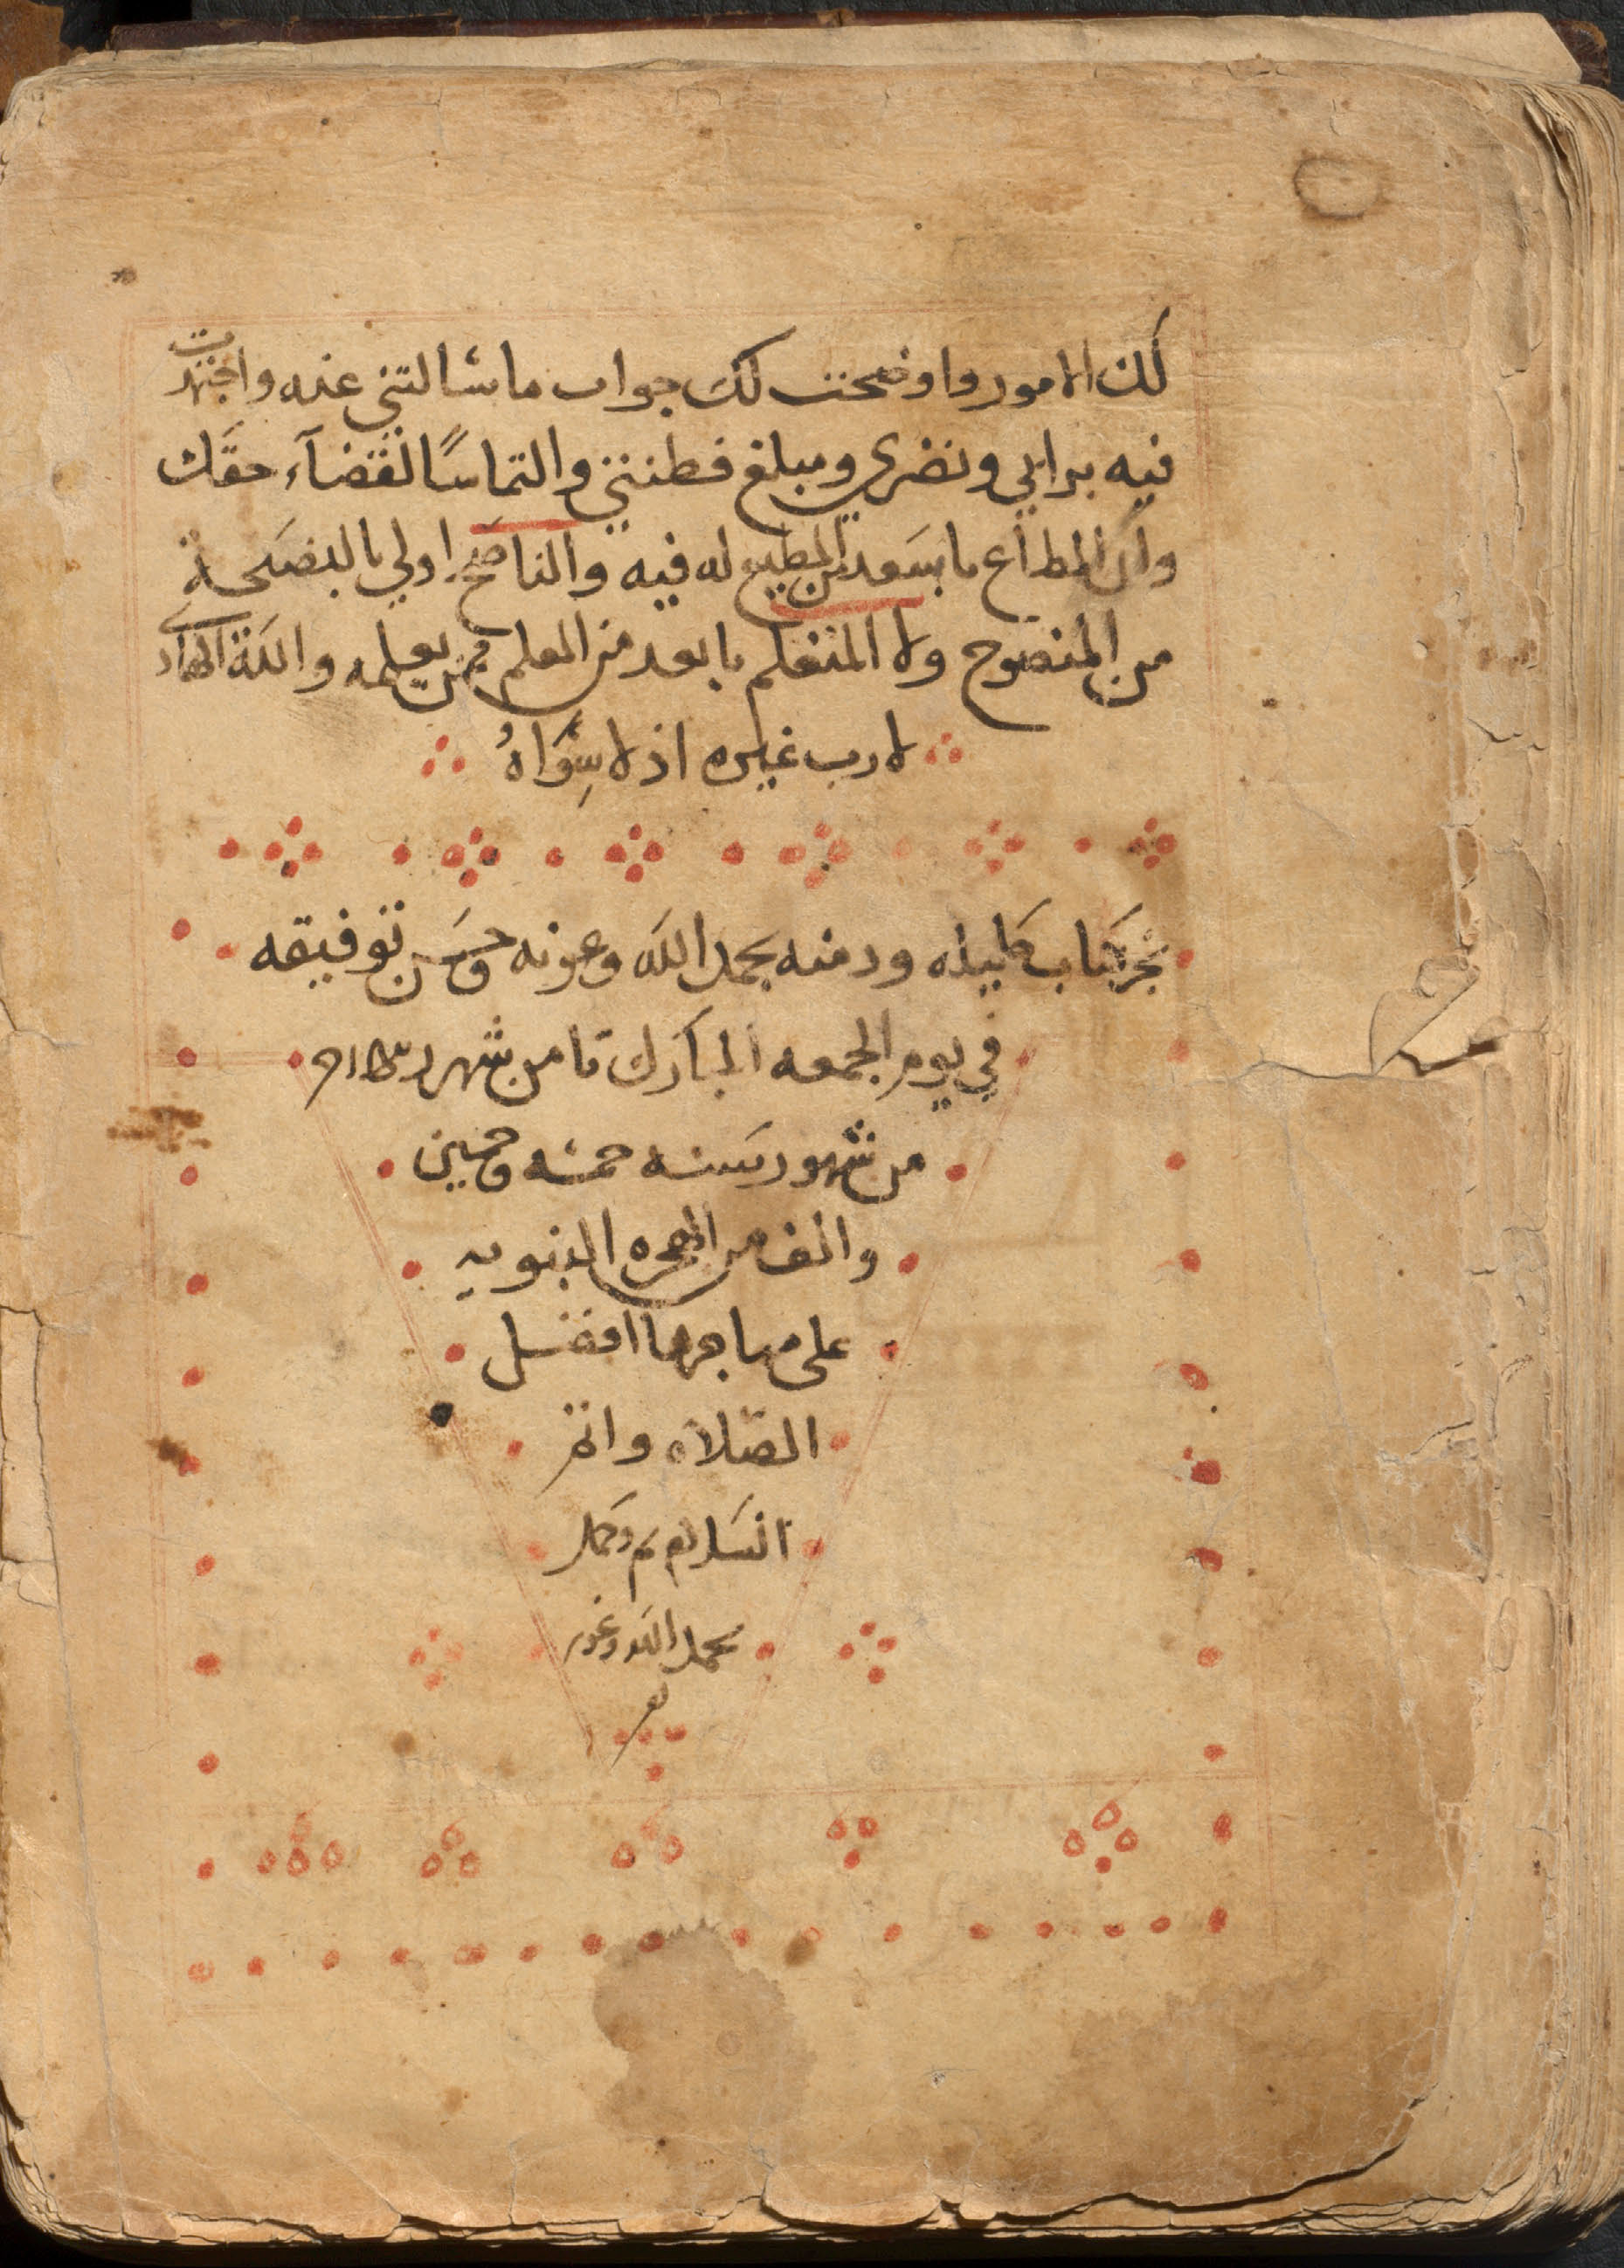 لك الامور واوضحت لك جواب ما سالتني عنه واجتهدت
فيه برايي ونضري ومبلغ فطنتي والتماسًا لقضآء حقك
وان المطاع باسعد من المطيع له فيه والناصح اولي بالنصيحة
من المنصوح ولا المتعلم بابعد من المعلم ممن يعلمه والله الهادى
لا رب غيره اذ لا سِوَاهُ
نجز كتاب كليله ودمنه بحمد الله وعونه وحسن توفيقه
في يوم الجمعه المبارك ثامن شهر
من شهور سنه خمسه وخمسين
والف من الهجره النبويه
على مهاجرها افضل
الصلاه واتم
السلام تم وكمل
بحمد الله وعونه